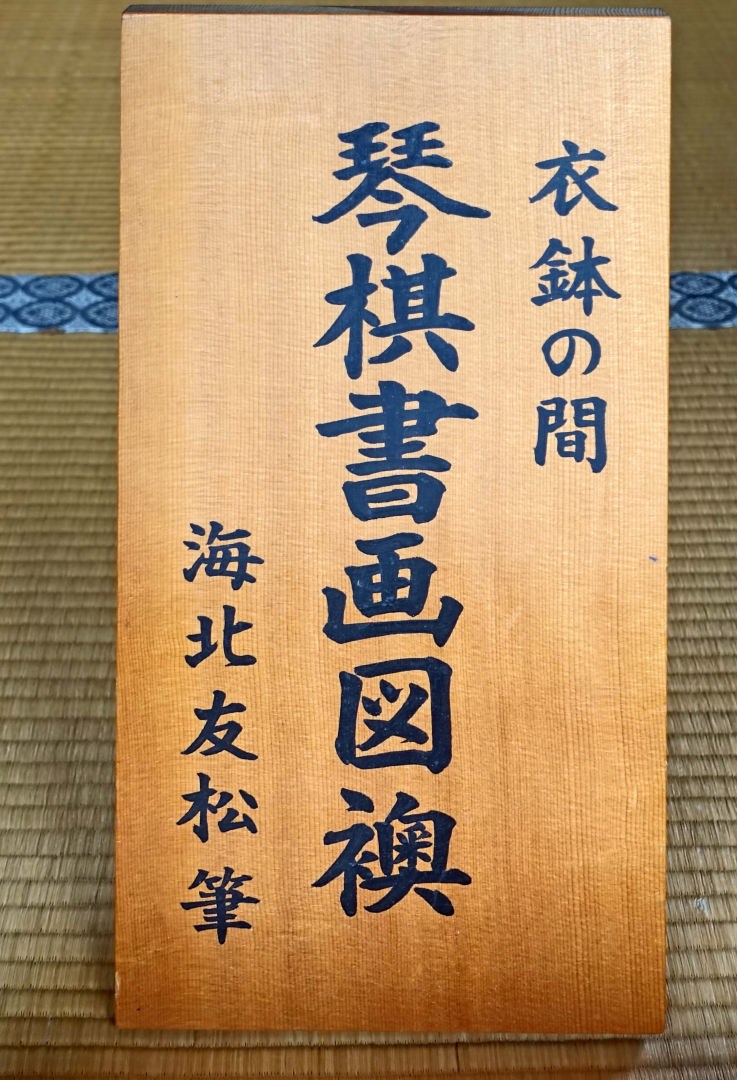 衣鉢の間
琴棋書画図襖
海北友松筆